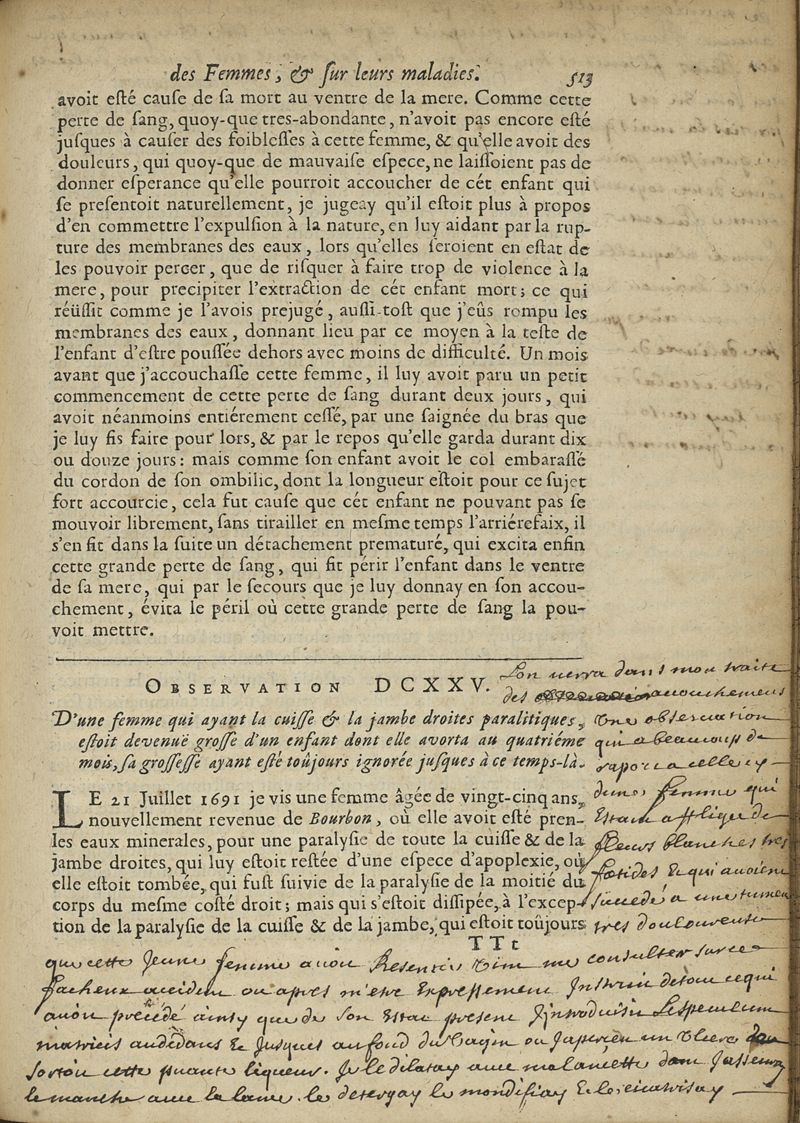 des Femmes, & ſur leurs maladies. 513
avoit eſté cauſe de ſa mort au ventre de la mere. Comme cette
perte de ſang, quoy-que tres-abondante, n'avoit pas encore eſté
juſques à cauſer des foibleſſes à cette femme, & qu'elle avoit des
douleurs, qui quoy-que de mauvaiſe eſpece, ne laiſſoient pas de
donner eſperance qu'elle pourroit accoucher de cét enfant qui
ſe preſentoit naturellement, je jugeay qu'il eſtoit plus à propos
d'en commettre l'expulſion à la nature, en luy aidant par la rup-
ture des membranes des eaux, lors qu'elles ſeroient en eſtat de
les pouvoir percer, que de riſquer à faire trop de violence à la
mere, pour precipiter l'extraction de cét enfant mort; ce qui
réüſſit comme je l'avois prejugé, auſſi-toſt que j'eûs rompu les
membranes des eaux, donnant lieu par ce moyen à la teſte de
l'enfant d'eſtre pouſſée dehors avec moins de difficulté. Un mois
avant que j'accouchaſſe cette femme, il luy avoit paru un petit
commencement de cette perte de ſang durant deux jours, qui
avoit néanmoins entiérement ceſſé, par une ſaignée du bras que
je luy fis faire pour lors, & par le repos qu'elle garda durant dix
ou douze jours: mais comme ſon enfant avoit le col embaraſſé
du cordon de ſon ombilic, dont la longueur eſtoit pour ce ſujet
fort accourcie, cela fut cauſe que cét enfant ne pouvant pas ſe
mouvoir librement, ſans tirailler en meſme temps l'arriérefaix, il
s'en fit dans la ſuite un détachement prematuré, qui excita enfin
cette grande perte de ſang, qui fit périr l'enfant dans le ventre
de ſa mere, qui par le ſecours que je luy donnay en ſon accou-
chement, évita le péril où cette grande perte de ſang la pou-
voit mettre.
OBSERVATION DCXXV.
D'une femme qui ayant la cuiſſe & la jambe droites paralitiques,
eſtoit devenuë groſſe d'un enfant dont elle avorta au quatriéme
mois, ſa groſſeſſe ayant eſté toûjours ignorée juſques à ce temps-là.
LE 21 Juillet 1691 je vis une femme âgée de vingt-cinq ans,
nouvellement revenue de Bourbon, où elle avoit eſté pren-
les eaux minerales, pour une paralyſie de toute la cuiſſe & de la
jambe droites, qui luy eſtoit reſtée d'une eſpece d'apoplexie, où
elle eſtoit tombée, qui fuſt ſuivie de la paralyſie de la moitié du
corps du meſme coſté droit; mais qui s'eſtoit diſſipée, à l'excep-
tion de la paralyſie de la cuiſſe & de la jambe, qui eſtoit toûjours
TTt
Lon uerra dans mon traite
des acouchements
une obseruation
qui a beaucoup de
raport a celle cy
dune femme qui
estait affligée de
fleurs blanches tres
fœtides & qui auoient
succedé a une tumeur
tres douloureuse
que cette jeune femme auoit resentie uint me consulter sur ce
facheux accident ou apres m'estre instruit de tout ce qui
auoit precedé ainsy que de son estat present J'introduisis le speculum
matricis audedans & jusques au fond du uagin ou
sortoit cette puante liqueur. Je le dilatay auec ma lancette dont
le manche auec la lame. le detergay le mondifiay & le cicatrisay